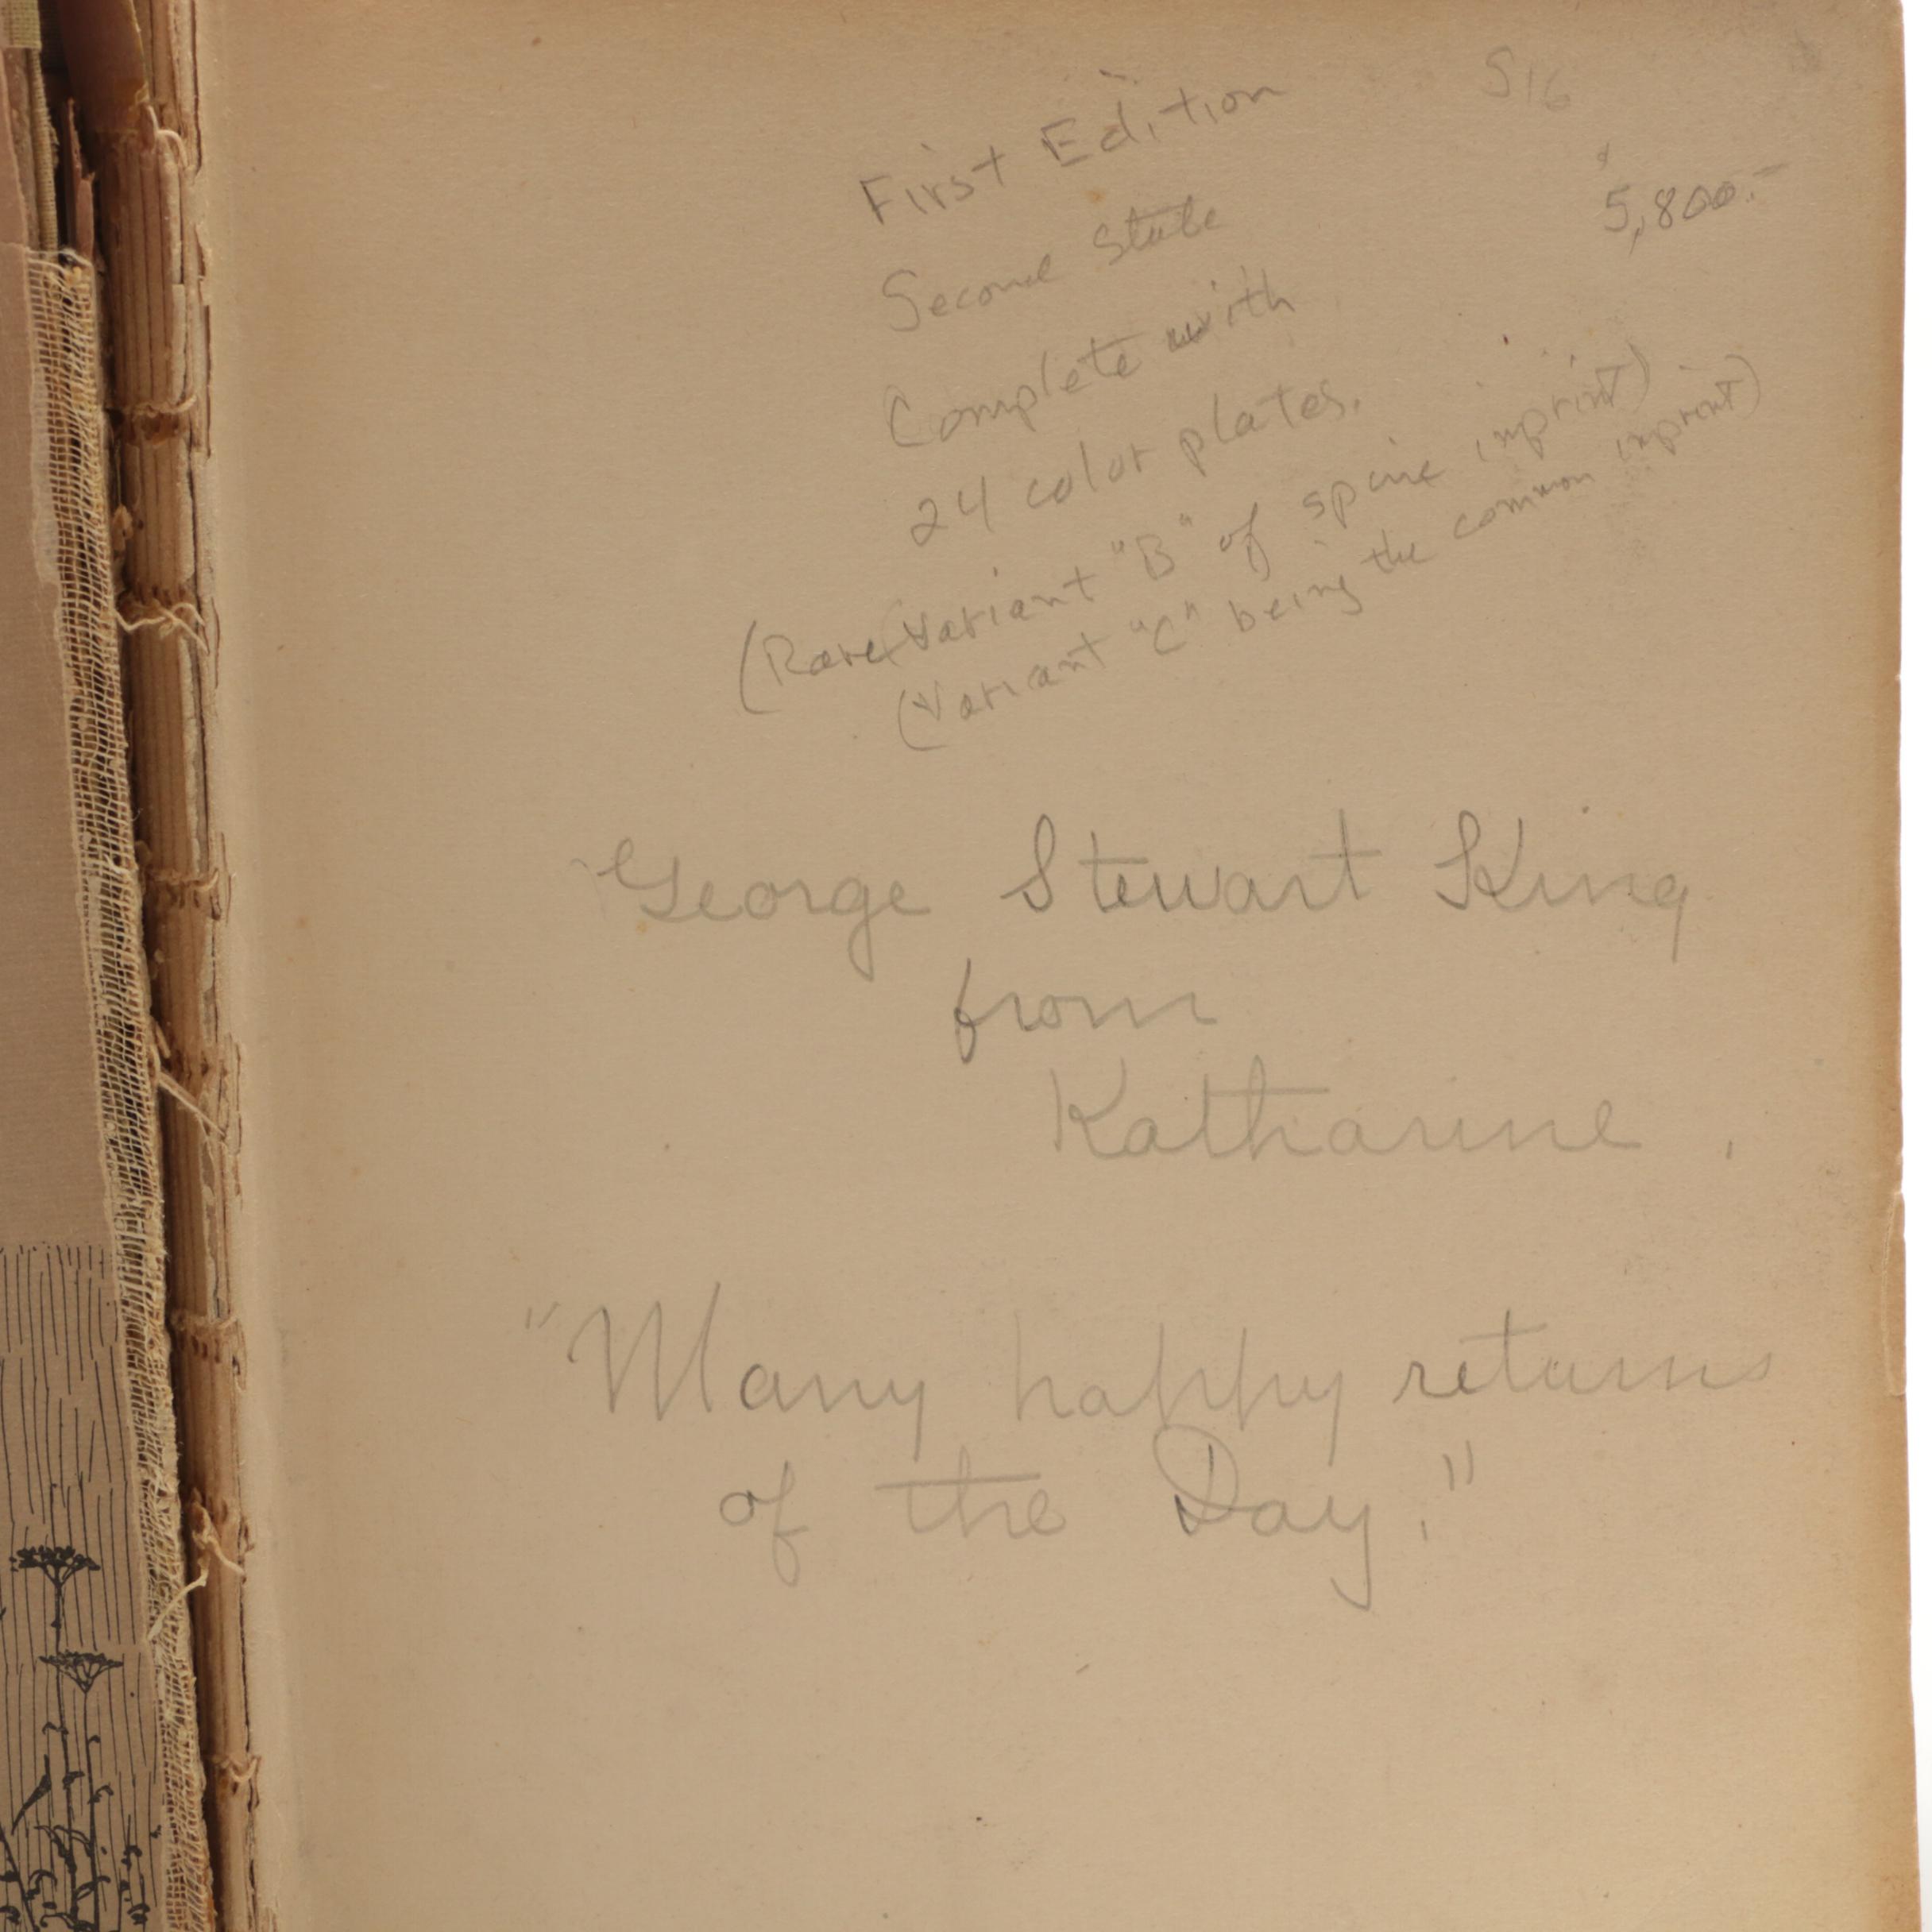 S16
$5,800.-
First Edition
Second State
Complete with
24 color plates.
(Rare Variant "B" of spine imprint)
(Variant "C" being the common imprint)
George Stewart King
from
Katharine.
"Many happy returns
of the Day."